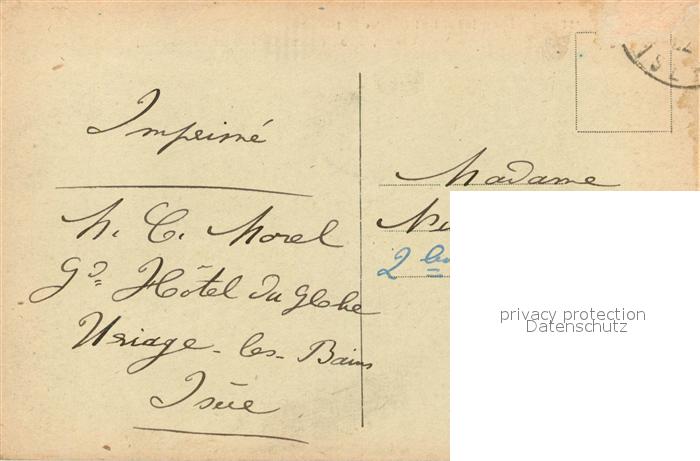 Imprimé
M. C. Morel
Gd Hôtel du Globe
Uriage-les-Bains
Isère
Madame
2
privacy protection
Datenschutz